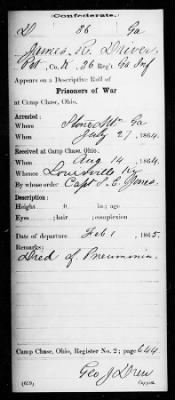 Confederate.
D 36 Ga
James R. Driver
Pvt, Co. K, 36 Reg't Ga Inf
Appears on a Descriptive Roll of
Prisoners of War
at Camp Chase, Ohio.
Arrested:
Where Stone Mt Ga
When July 27, 1864.
Received at Camp Chase, Ohio:
When Aug 14, 1864.
Whence Louisville Ky
By whose order Capt S. E. Jones
Description:
Height ft. in.; age
Eyes ; hair ; complexion
Date of departure Feb 1, 1865.
Remarks:
Died of Pneumonia.
Camp Chase, Ohio, Register No. 2; page 644
Geo J Drew
(639) Copyist.